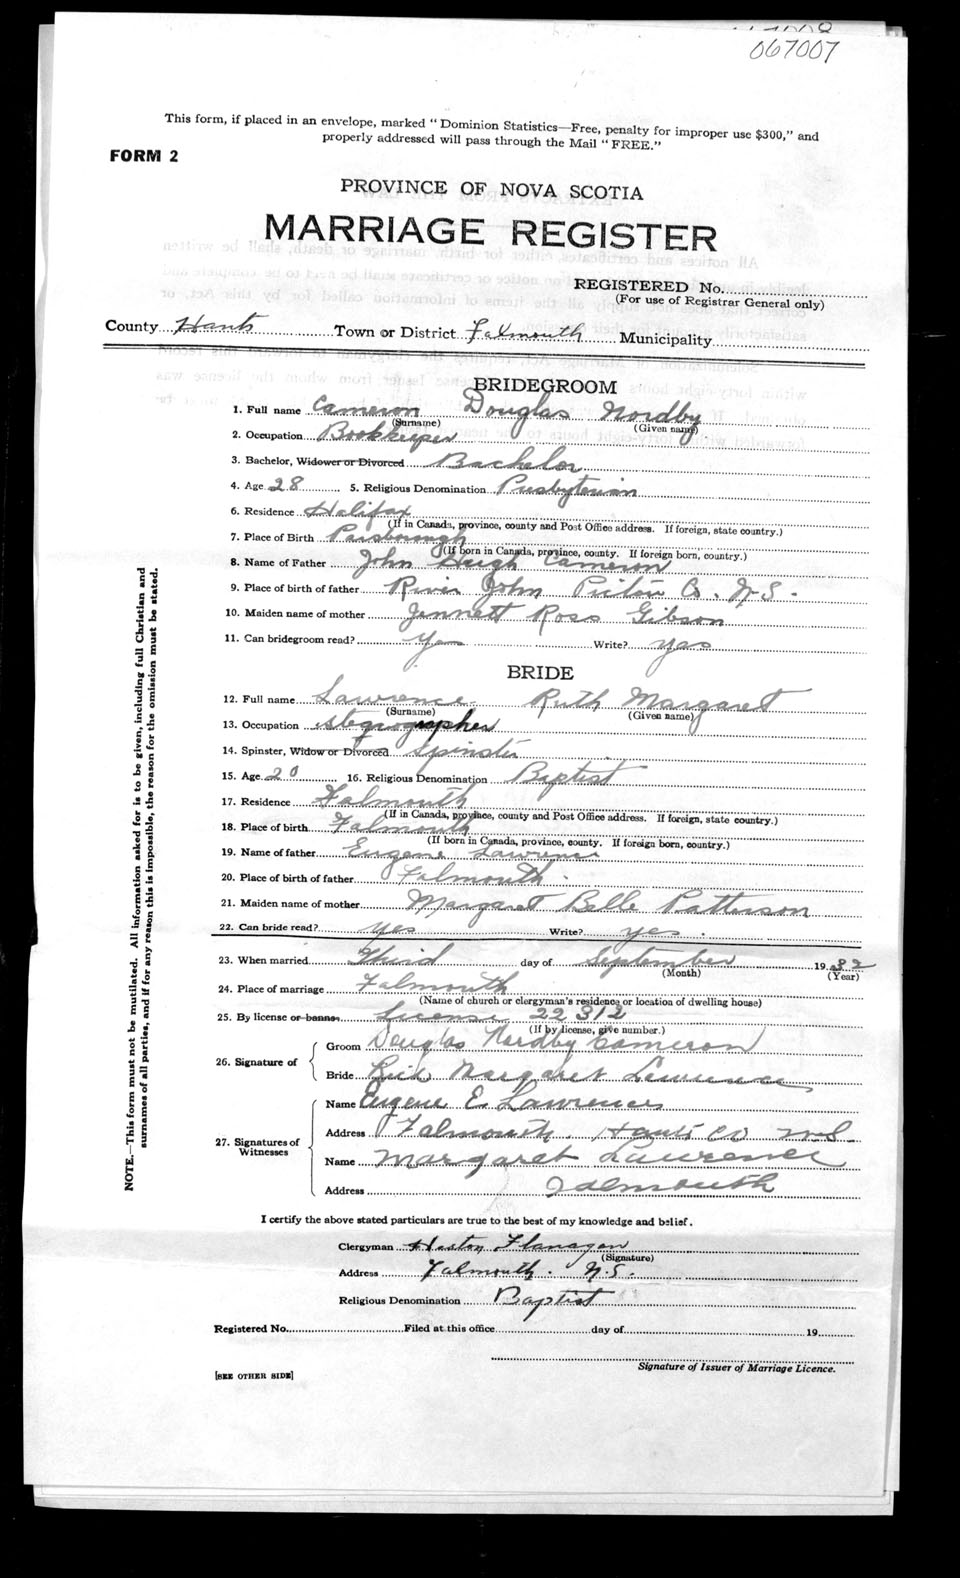 067007
This form, if placed in an envelope, marked "Dominion Statistics—Free, penalty for improper use $300," and
properly addressed will pass through the Mail "FREE."
FORM 2
PROVINCE OF NOVA SCOTIA
MARRIAGE REGISTER
REGISTERED No.
(For use of Registrar General only)
County Hants Town or District Falmouth Municipality
BRIDEGROOM
1. Full name Cameron Douglas Nordby
(Surname) (Given name)
2. Occupation Bookkeeper
3. Bachelor, Widower or Divorced Bachelor
4. Age 28 5. Religious Denomination Presbyterian
6. Residence Halifax
(If in Canada, province, county and Post Office address. If foreign, state country.)
7. Place of Birth Parsborough
(If born in Canada, province, county. If foreign born, country.)
8. Name of Father John Hugh Cameron
9. Place of birth of father River John Pictou Co. N.S.
10. Maiden name of mother Jennett Ross Gibson
11. Can bridegroom read? Yes Write? yes
BRIDE
12. Full name Lawrence Ruth Margaret
(Surname) (Given name)
13. Occupation stegnographer
14. Spinster, Widow or Divorced Spinster
15. Age 20 16. Religious Denomination Baptist
17. Residence Falmouth
(If in Canada, province, county and Post Office address. If foreign, state country.)
18. Place of birth Falmouth
(If born in Canada, province, county. If foreign born, country.)
19. Name of father Eugene Lawrence
20. Place of birth of father Falmouth.
21. Maiden name of mother Margaret Belle Patterson
22. Can bride read? yes Write? yes.
23. When married Third day of September 1932
(Month) (Year)
24. Place of marriage Falmouth
(Name of church or clergyman's residence or location of dwelling house)
25. By license or banns License 22312
(If by license, give number.)
26. Signature of
Groom Douglas Nordby Cameron
Bride Ruth Margaret Lawrence
27. Signatures of Witnesses
Name Eugene E. Lawrence
Address Falmouth. Hants Co N.S.
Name Margaret Lawrence
Address Falmouth
I certify the above stated particulars are true to the best of my knowledge and belief.
Clergyman Heston Flanagan
(Signature)
Address Falmouth. N.S.
Religious Denomination Baptist
Registered No. Filed at this office day of 19
Signature of Issuer of Marriage Licence.
[SEE OTHER SIDE]
NOTE.—This form must not be mutilated. All information asked for is to be given, including full Christian and
surnames of all parties, and if for any reason this is impossible, the reason for the omission must be stated.